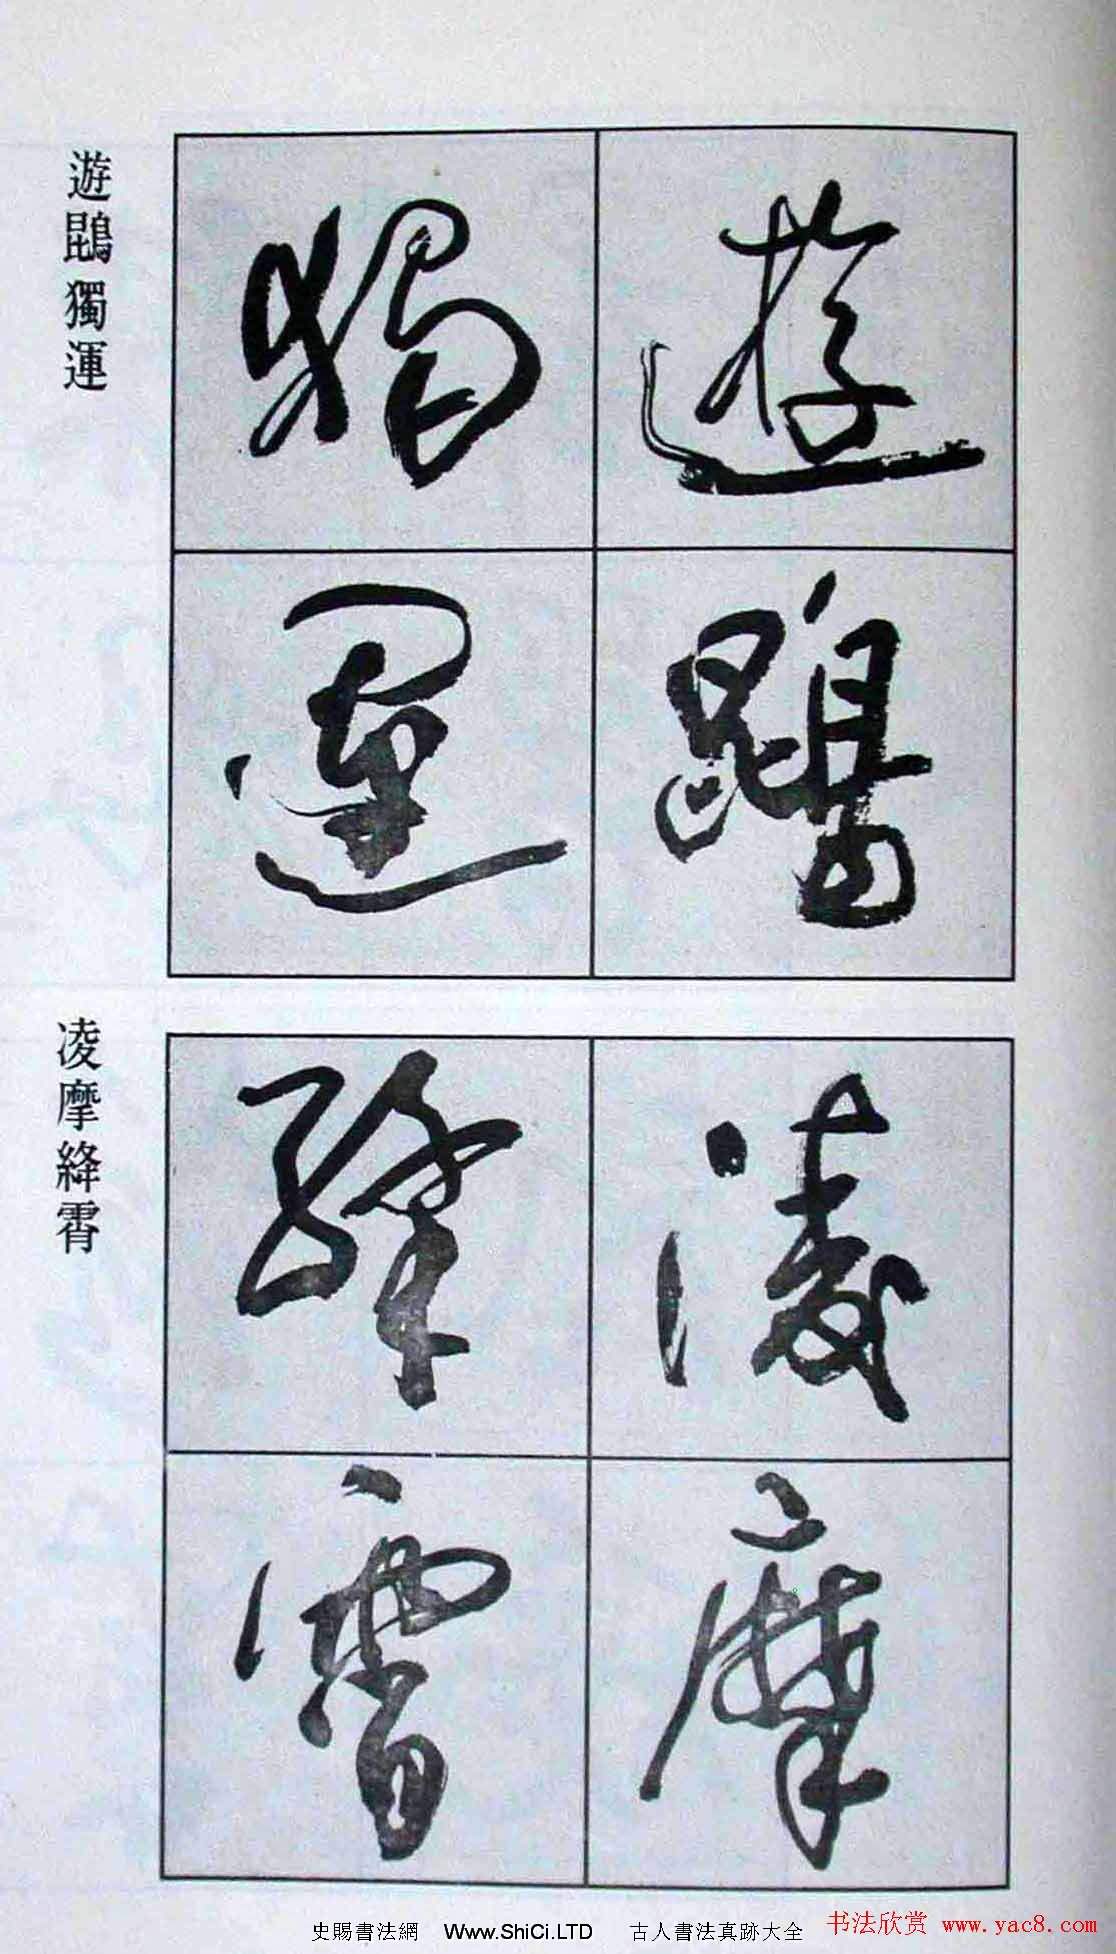 遊鵾獨運
遊鵾
獨運
凌摩絳霄
凌摩
絳霄
史賜書法網 Www.ShiCi.LTD 古人書法真跡大全
书法欣赏 www.yac8.com